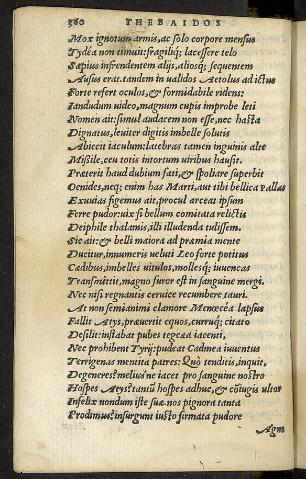 360 THEBAIDOS
Mox ignotum armis, ac solo corpore mensus
Tydea non timuit: fragiliq; lacessere telo
Sæpius infrendentem alijs, aliosq; sequentem
Ausus erat. tandem in ualidos Aetolus ad ictus
Forte refert oculos, & formidabile ridens:
Iandudum uideo, magnum cupis improbe leti
Nomen ait: simul audacem non esse, nec hasta
Dignatus, leuiter digitis imbelle solutis
Abiecit iaculum: latebras tamen inguinis alte
Missile, ceu totis intortum uiribus hausit.
Præterit haud dubium fati, & spoliare superbit
Oenides, neq; enim has Marti, aut tibi bellica Pallas
Exuuias figemus ait, procul arceat ipsum
Ferre pudor: uix si bellum comitata relictis
Deiphile thalamis, illi illudenda tulissem.
Sic ait: & belli maiora ad præmia mente
Ducitur, innumeris ueluti Leo forte potitus
Cædibus, imbelles uitulos, mollesq; iuuencas
Transmittit, magno furor est in sanguine mergi.
Nec nisi regnantis ceruice recumbere tauri.
At non semianimi clamore Menœceæ lapsus
Fallit Atys, præuertit equos, curruq; citato
Desilit: instabat pubes tegeæa iacenti,
Nec prohibent Tyrij: pudeat Cadmea iuuentus
Terrigenas mentita patres: Quò tenditis, inquit,
Degeneres? meliusne iacet pro sanguine nostro
Hospes Atys? tantũ hospes adhuc, & cõiugis ultor
Infelix nondum iste suæ. nos pignora tanta
Prodimus? insurgunt iusto firmata pudore
Agm